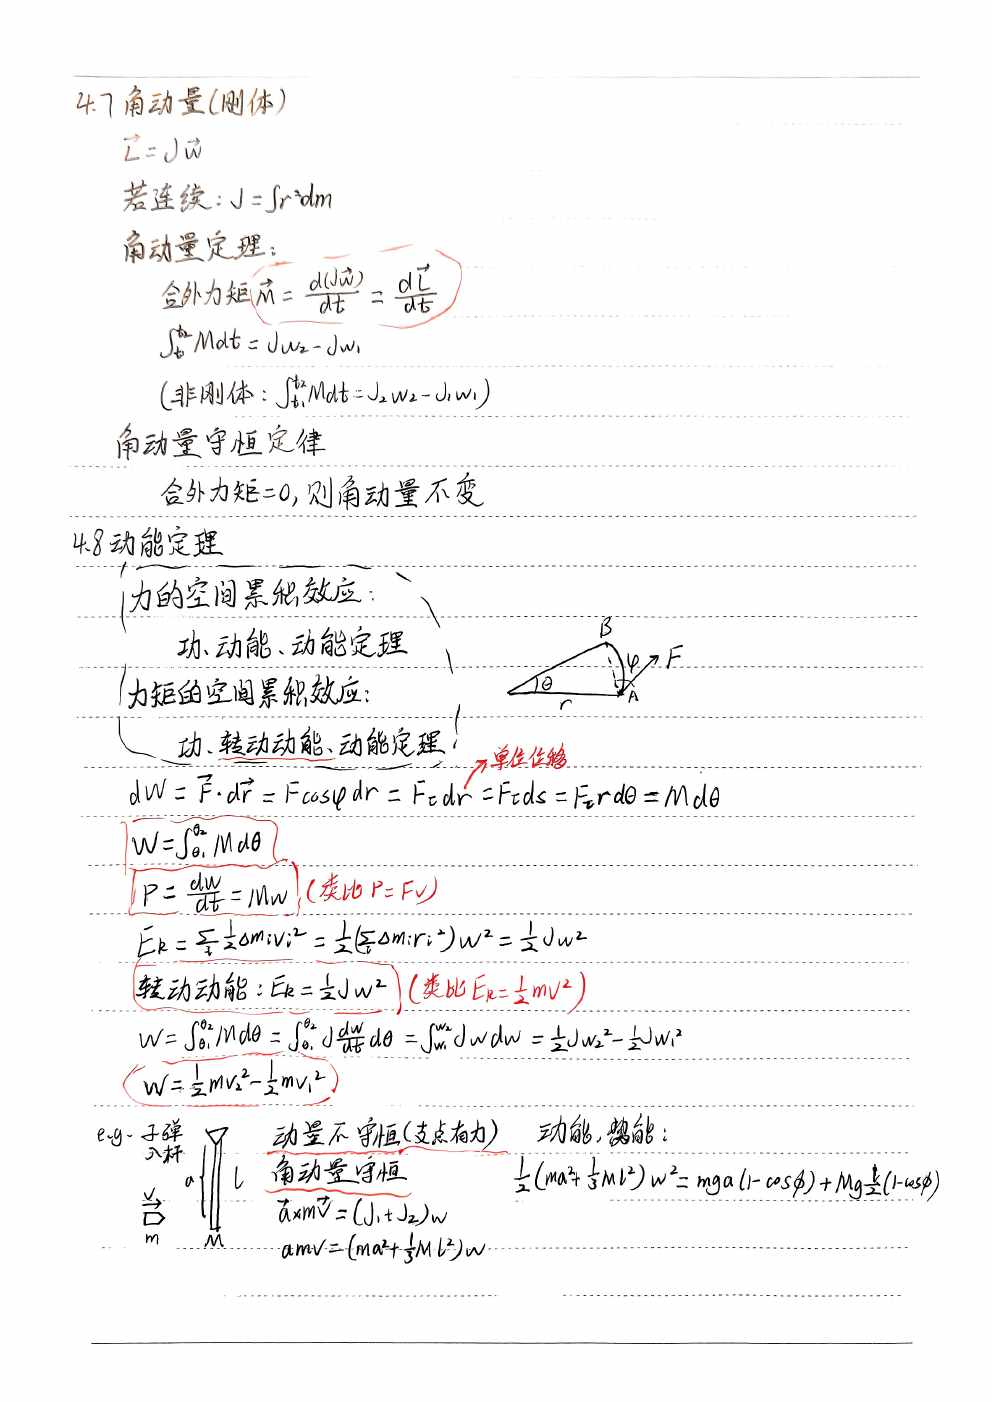 4.7 角动量(刚体)
L⃗ = Jw⃗
若连续: J = ∫r²dm
角动量定理:
合外力矩 M⃗ = d(Jw⃗)/dt = dL⃗/dt
∫_{t₁}^{t₂} Mdt = Jw₂ - Jw₁
(非刚体: ∫_{t₁}^{t₂} Mdt = J₂w₂ - J₁w₁)
角动量守恒定律
合外力矩=0, 则角动量不变
4.8 动能定理
力的空间累积效应:
功、动能、动能定理
力矩的空间累积效应:
功、转动动能、动能定理
B
φ
F
θ
A
r
单位位移
dW = F⃗·dr⃗ = Fcosφdr = Fτdr = Fτds = Fτrdθ = Mdθ
W = ∫_{θ₁}^{θ₂} Mdθ
P = dW/dt = Mw (类比 P = Fv)
Eₖ = Σᵢ ½Δmᵢvᵢ² = ½(Σᵢ Δmᵢrᵢ²)w² = ½Jw²
转动动能: Eₖ = ½Jw² (类比 Eₖ = ½mv²)
W = ∫_{θ₁}^{θ₂} Mdθ = ∫_{θ₁}^{θ₂} J dw/dt dθ = ∫_{w₁}^{w₂} Jwdw = ½Jw₂² - ½Jw₁²
W = ½mv₂² - ½mv₁²
e.g. 子弹
入杆
a
l
v
m
M
动量不守恒(支点有力)
角动量守恒
a⃗×mv⃗ = (J₁+J₂)w
amv = (ma²+⅓Ml²)w
动能,势能:
½(ma²+⅓Ml²)w² = mga(1-cosφ) + Mg l/2 (1-cosφ)